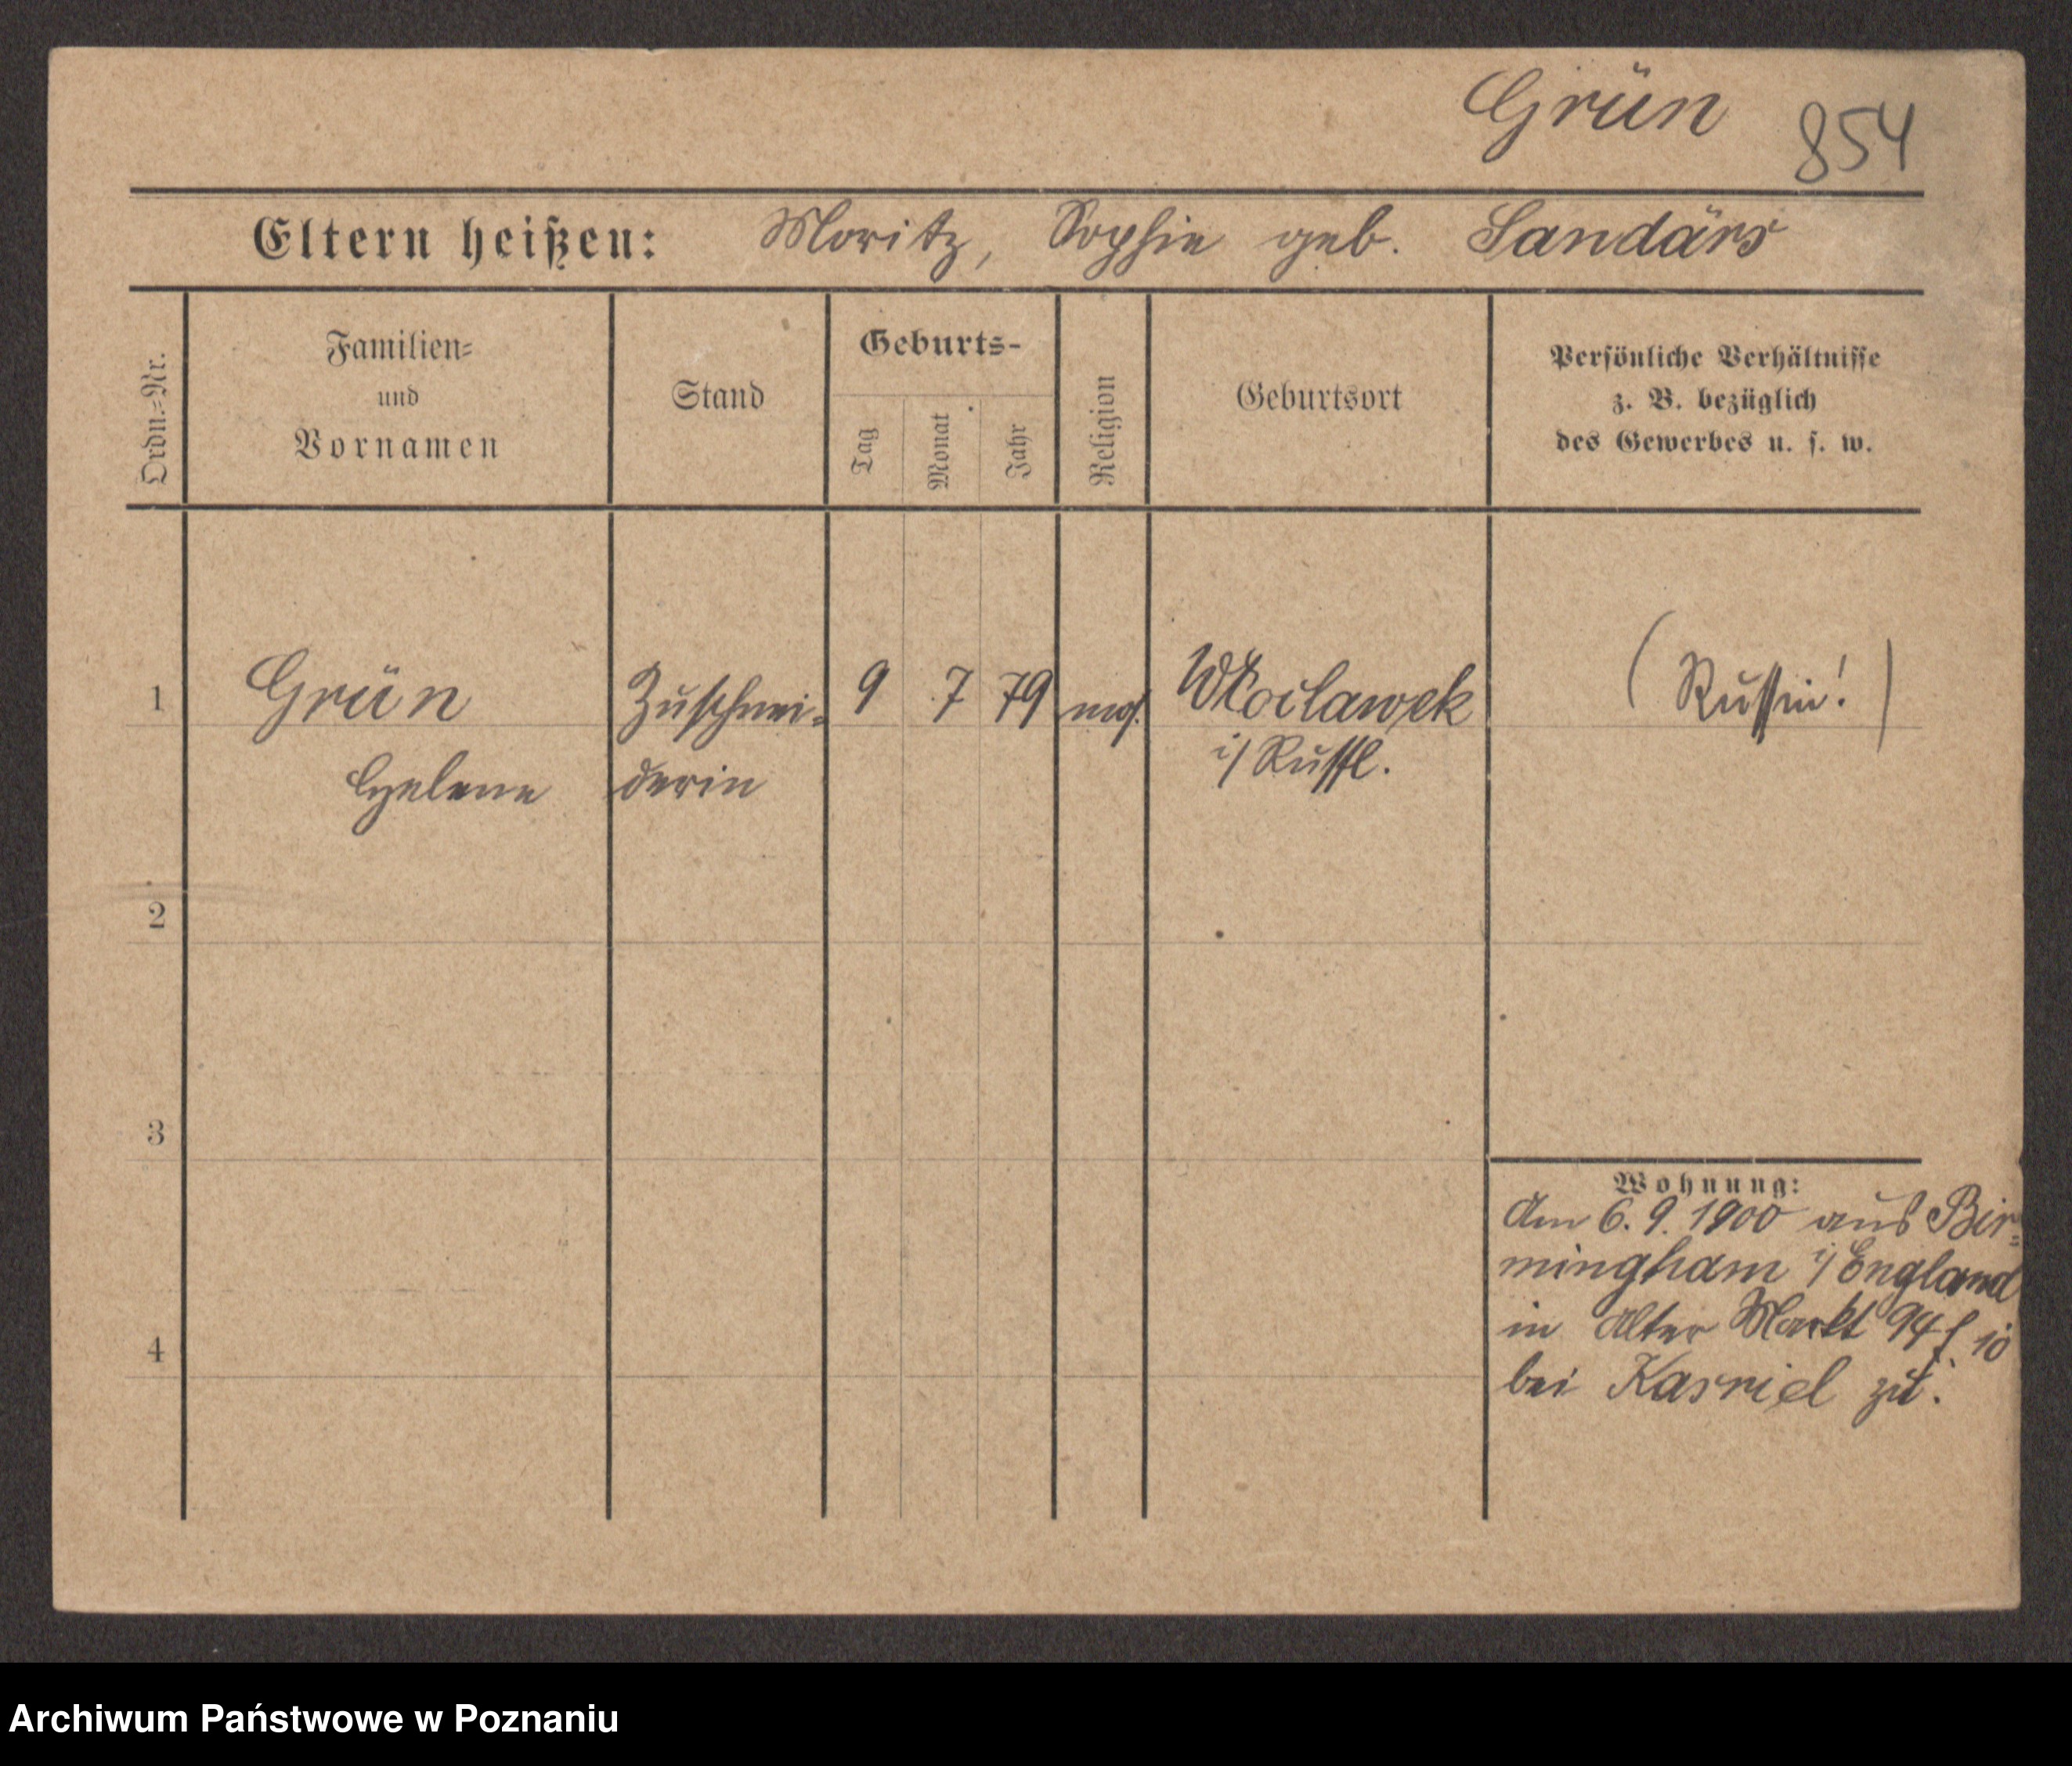 Grün 854
Eltern heißen: Moritz, Sophie geb. Sandärs
Ordn.=Nr.
Familien=
und
Vornamen
Stand
Geburts-
Tag
Monat
Jahr
Religion
Geburtsort
Persönliche Verhältnisse
z. B. bezüglich
des Gewerbes u. s. w.
1 Grün Zuschnei- 9 7 79 mos. Włoclawek (Russin!)
Helene derin i/ Russl.
2
3
Wohnung:
Am 6. 9. 1900 aus Bir=
mingham i/ England
in Alter Markt 94
4
bei Kasriel zu.
Archiwum Państwowe w Poznaniu